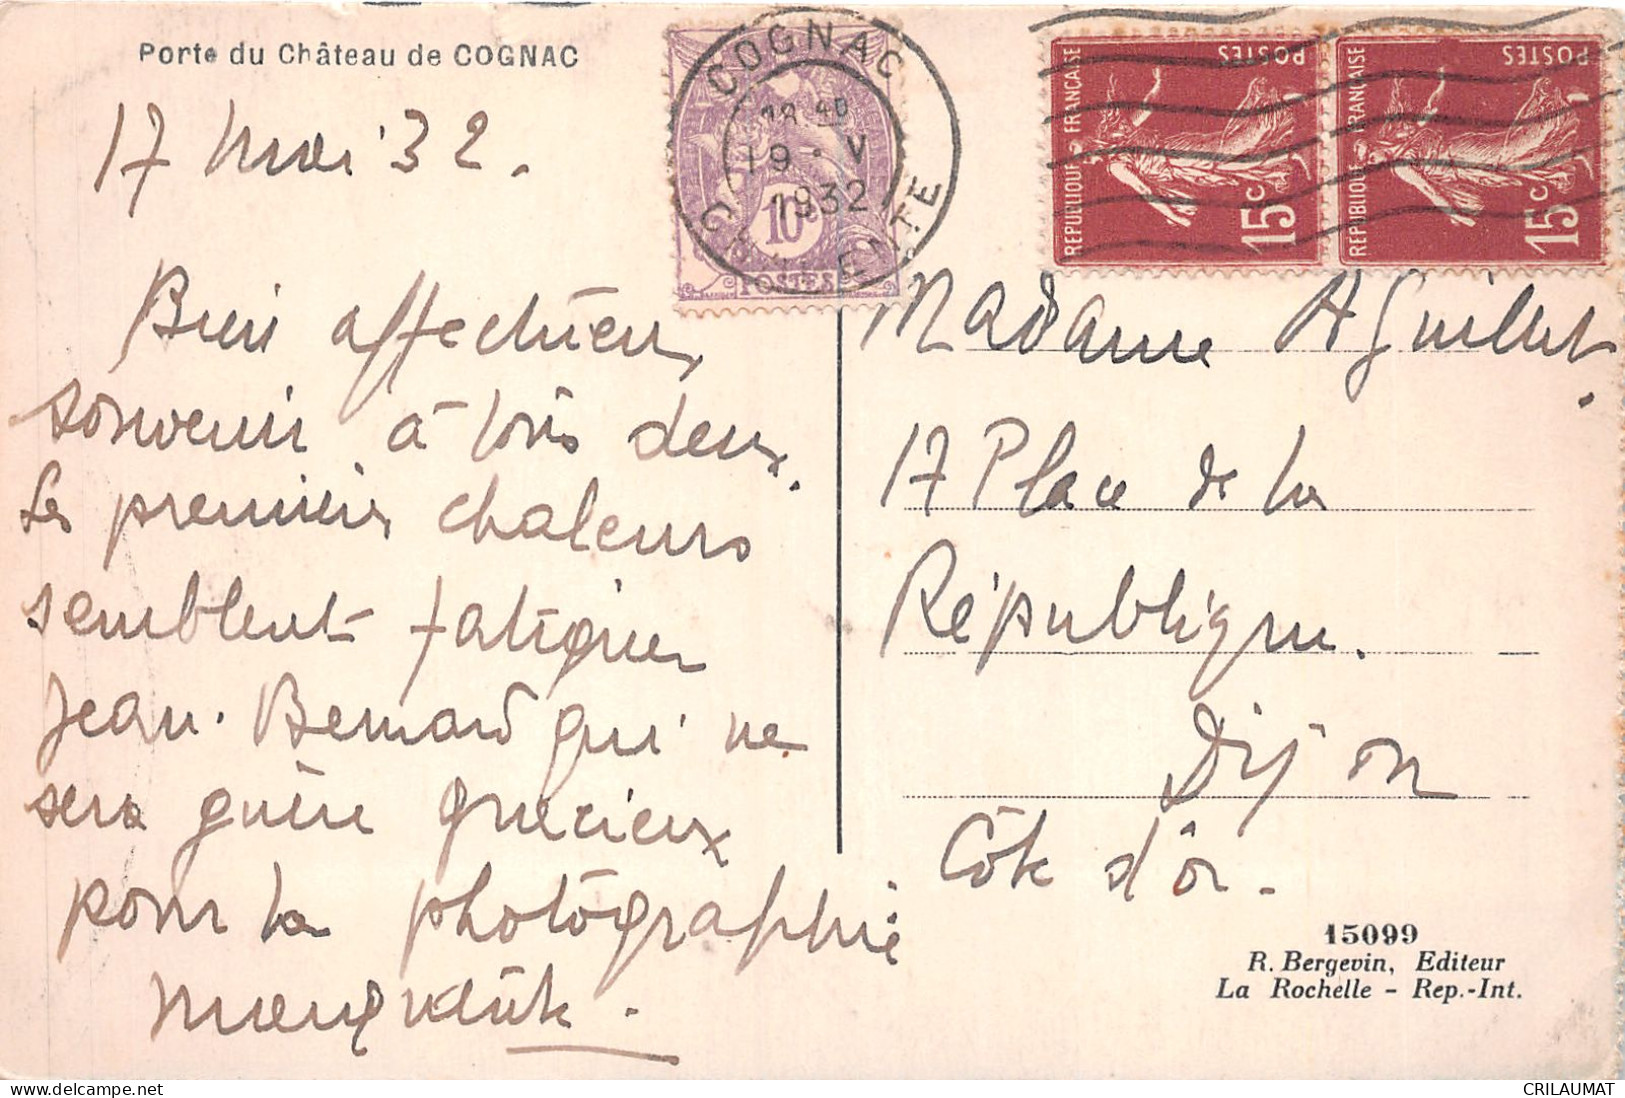 Porte du Château de COGNAC
17 Mai 32.
Bien affectueux
souvenir à tous deux.
Les premières chaleurs
semblent fatiguer
Jean-Bernard qui ne
sera guère gracieux
pour la photographie
COGNAC
18 40
19 - V
1932
CH ENTE
10c
POSTES
REPUBLIQUE FRANÇAISE
POSTES
15c
REPUBLIQUE FRANÇAISE
POSTES
15c
Madame A Guillet.
17 Place de la
République.
Dijon
Côte d'or.
15099
R. Bergevin, Editeur
La Rochelle - Rep.-Int.
CRILAUMAT